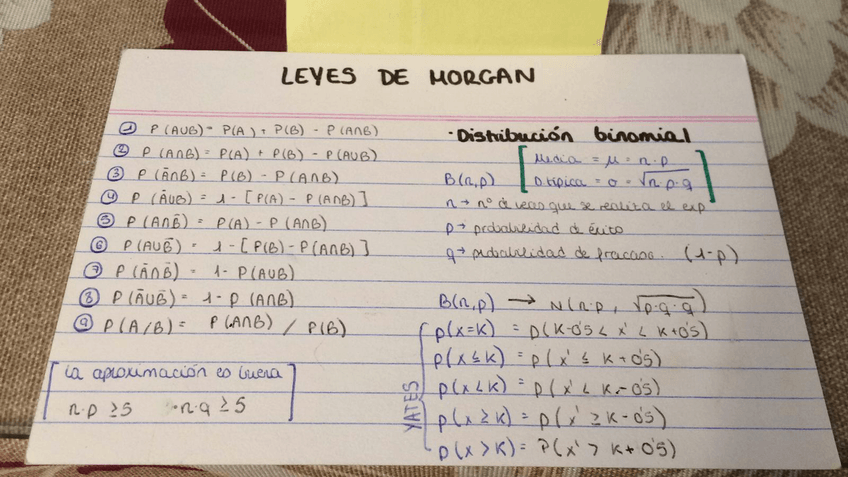 LEYES DE MORGAN
① P(A∪B) = P(A) + P(B) - P(A∩B)
② P(A∩B) = P(A) + P(B) - P(A∪B)
③ P(Ā∩B) = P(B) - P(A∩B)
④ P(Ā∪B) = 1 - [P(A) - P(A∩B)]
⑤ P(A∩B̄) = P(A) - P(A∩B)
⑥ P(A∪B̄) = 1 - [P(B) - P(A∩B)]
⑦ P(Ā∩B̄) = 1 - P(A∪B)
⑧ P(Ā∪B̄) = 1 - P(A∩B)
⑨ P(A/B) = P(A∩B) / P(B)
la aproximación es buena
n·p ≥ 5 · n·q ≥ 5
· Distribución binomial
Media = μ = n·p
B(n,p) D.típica = σ = √n·p·q
n → nº de veces que se realiza el exp
p → probabilidad de éxito
q → probabilidad de fracaso. (1-p)
B(n,p) → N(n·p, √p·q·q)
YATES
p(x=k) = p(k-0'5 < x' < k+0'5)
p(x≤k) = p(x' ≤ k+0'5)
p(x<k) = p(x' < k-0'5)
p(x≥k) = p(x' ≥ k-0'5)
p(x>k) = P(x' > k+0'5)